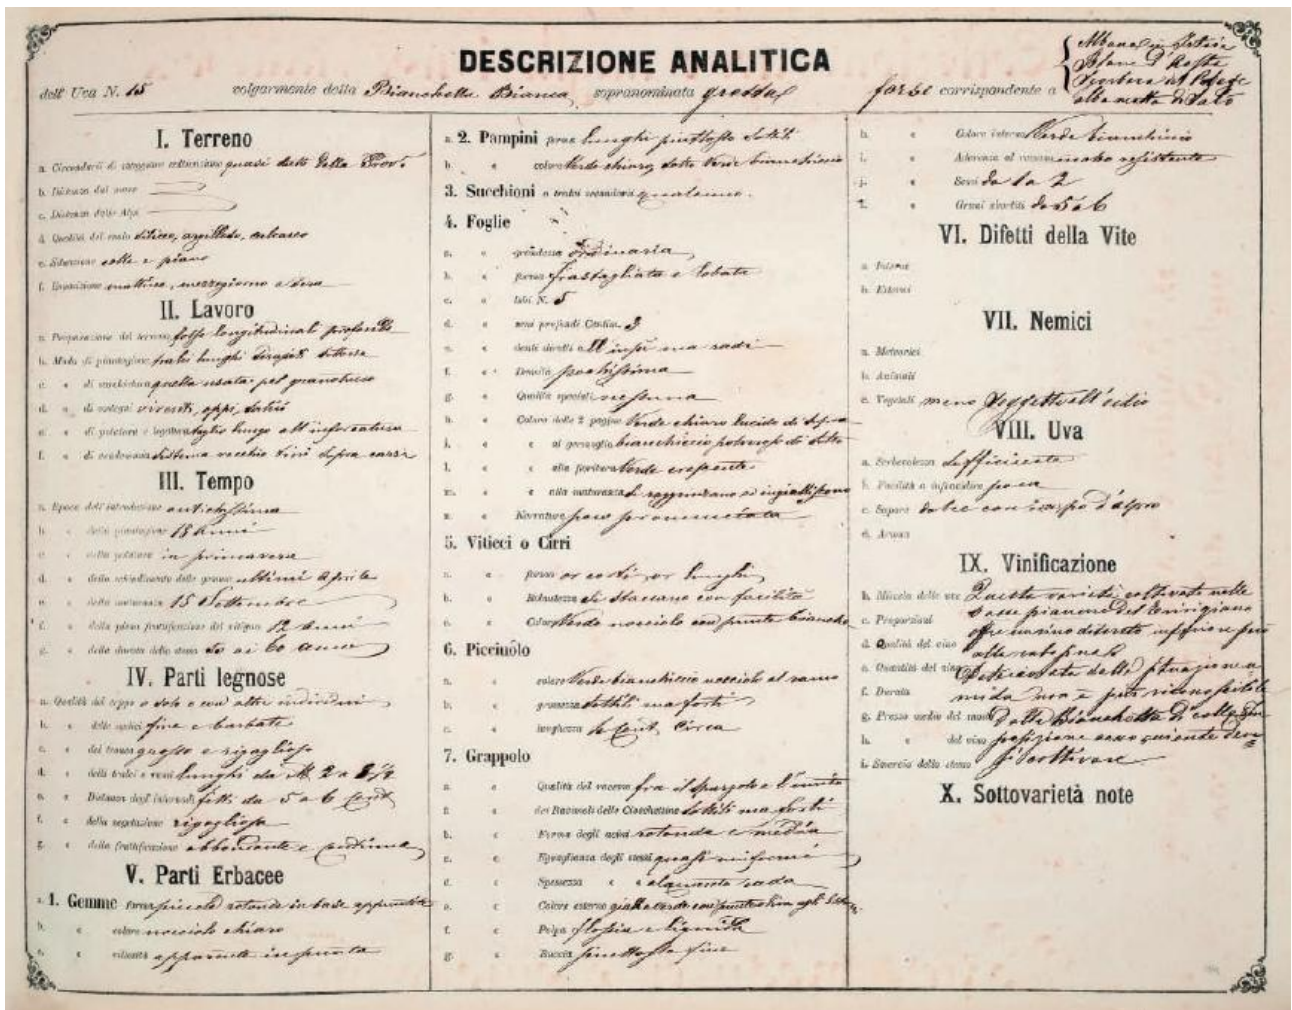 DESCRIZIONE ANALITICA
dell' Uva N. 15 volgarmente detta Bianchetta Bianca, sopranominata grossa forse corrispondente a
Albana in Istria
Blanc d'Aosta
I. Terreno
a. Circondarii di maggiore coltivazione quasi tutto della Prov.
b. Distanza dal mare
c. Distanza dalle Alpi
d. Qualità del suolo siliceo, argilloso, calcareo
e. Situazione colle e piano
f. Esposizione mattina, mezzogiorno a sera
II. Lavoro
a. Preparazione del terreno fosse longitudinali profonde
b. Modo di piantagione tralci lunghi
c. « di quella usata pel granoturco
d. « di sostegni viventi, oppi, salici
e. « di potatura e legatura taglio lungo all'inforcatura
f. « di sistema vecchio tini sopra vasse
III. Tempo
a. Epoca dell'introduzione antichissima
b. « della piantagione 15 Anni
c. « della potatura in primavera
d. « dello schiudimento delle gemme ultimi Aprile
e. « della maturanza 15 Settembre
f. « della piena fruttificazione del vitigno 12 Anni
g. « della durata dello stesso 50 ai 60 anni
IV. Parti legnose
a. Qualità del ceppo o solo o con altri individui
b. « delle radici fine e barbate
c. « del tronco grosso e rigoglioso
d. « delli tralci e rami lunghi da M. 2 a 2 1/2
e. « Distanza degl'internodi fitti da 5 a 6 Cent.
f. « della vegetazione rigogliosa
g. « della fruttificazione abbondante e continua
V. Parti Erbacee
a. 1. Gemme forma piccole rotonde in base appuntite
b. « colore nocciolo chiaro
c. « villosità apparente in punta
a. 2. Pampini forma lunghi piuttosto sottili
b. « colore Verde chiaro, sotto Verde bianchiccio
3. Succhioni o tralci secondarii qualcuno.
4. Foglie
a. « grandezza ordinaria
b. « forma frastagliata e lobata
c. « lobi N. 5
d. « seni profondi Centim. 3
e. « denti diretti all'insù ma radi
f. « Densità pochissima
g. « Qualità speciali nessuna
h. « Colore delle 2 pagine Verde chiaro lucido di sopra
i. « « al germoglio bianchiccio polveroso di sotto
l. « « alla fioritura Verde crescente
m. « « alla maturanza si raggrinzano ed ingialliscono
n. « Nervature poco pronunciata
5. Viticci o Cirri
a. « forma or corti, or lunghi
b. « Robustezza si staccano con facilità
c. « Colore Verde nocciolo con punte bianche
6. Picciuolo
a. « colore Verde bianchiccio nocciolo al ramo
b. « grossezza sottili ma forti
c. « lunghezza Cent. Circa
7. Grappolo
a. « Qualità del racemo fra il spargolo e l'unito
« « dei Racimoli delle Ciocchettine sottili ma forti
b. « Forma degli acini rotonda e media
c. « Eguaglianza degli stessi quasi uniformi
d. « Spessezza « « alquanto rada
e. « Colore esterno giallo verde
f. « Polpa floscia e liquida
g. « Buccia piuttosto fine
h. « Colore interno Verde bianchiccio
i. « Aderenza al racemo molto resistente
j. « Semi da 1 a 2
l. « Grani abortiti da 5 a 6
VI. Difetti della Vite
a. Interni
b. Esterni
VII. Nemici
a. Meteorici
b. Animali
c. Vegetali meno soggetto all'oidio
VIII. Uva
a. Serbevolezza sufficiente
b. Facilità a infracidire poca
c. Sapore dolce con un po' d'aspro
d. Aroma
IX. Vinificazione
Questa varietà coltivata nelle
b. Miscela delle uve
basse pianure del Conigliano
c. Proporzioni
offre un vino discreto inferiore però
d. Qualità del vino
e. Quantità del vino
f. Durata
mida non è più riconoscibile
g. Prezzo medio del
dalla Bianchetta di colle
h. « del vino
i. Smercio dello stesso si coltivare
X. Sottovarietà note